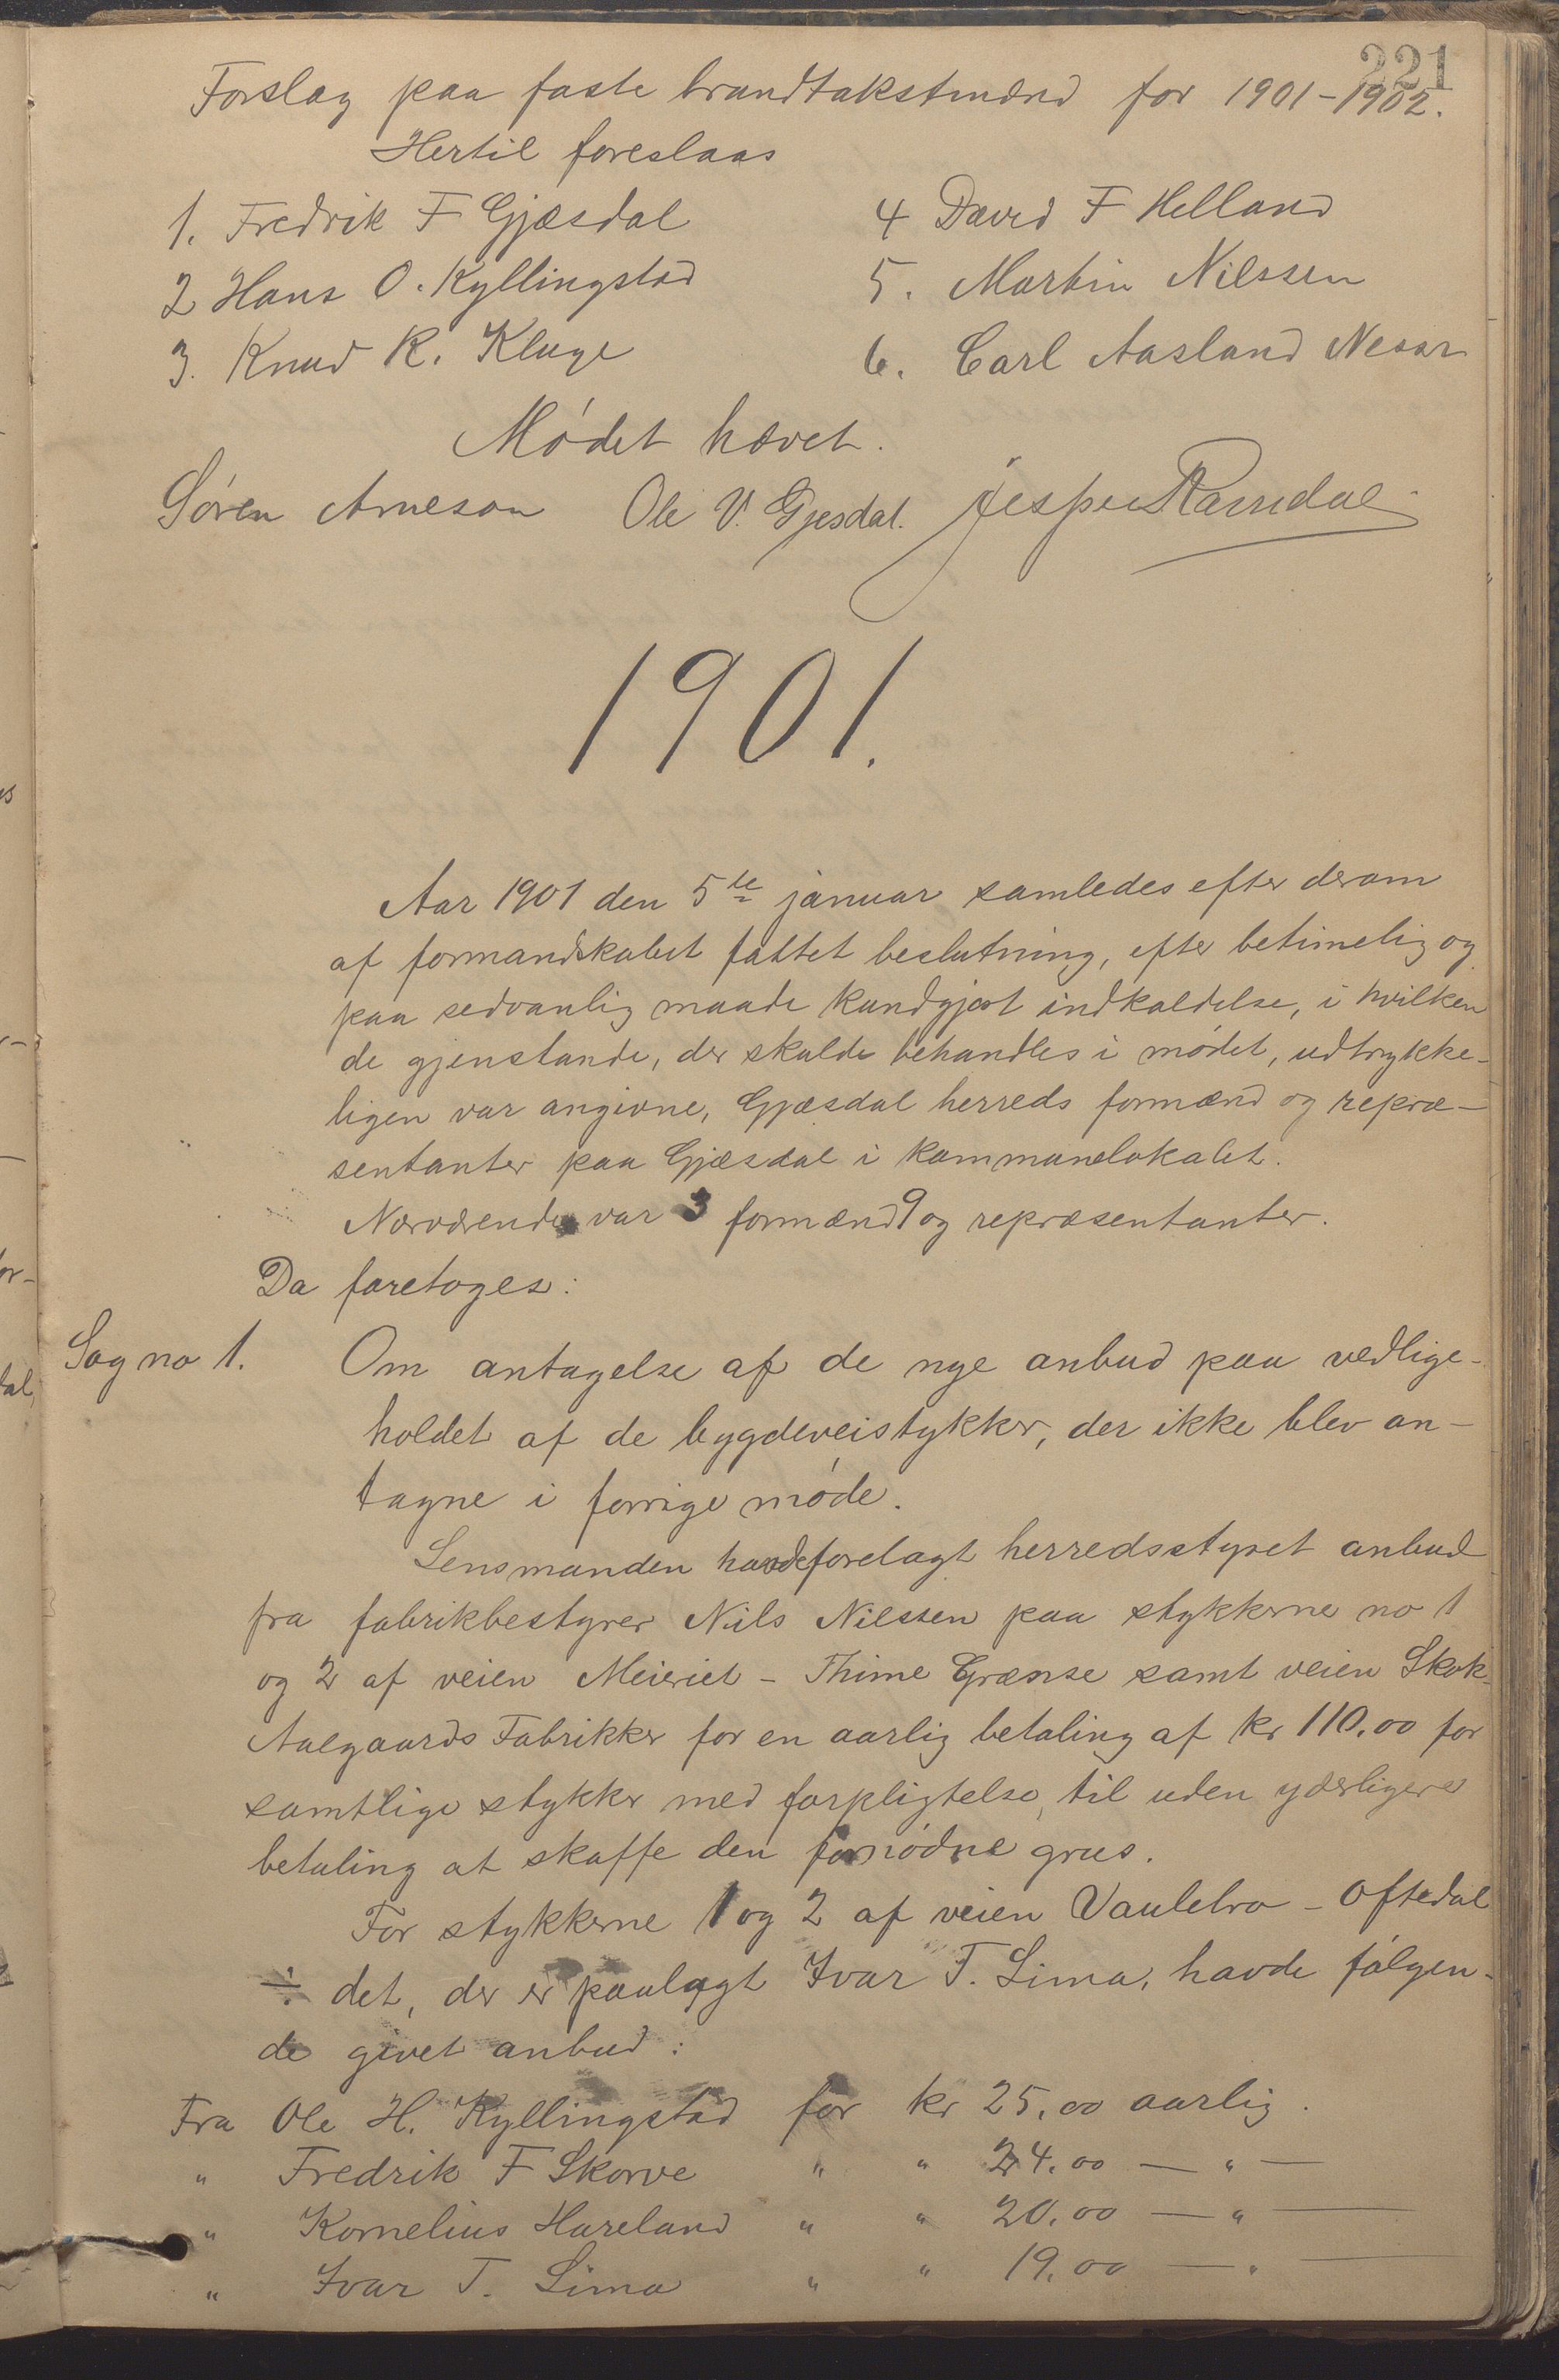 221
Forslag paa faste brandtakstmænd for 1901-1902.
Hertil foreslaas
1. Fredrik F Gjæsdal
2 Hans O. Kyllingstad
3. Knud R. Kluge
4 David F Helland
5. Martin Nilssen
6. Carl Aasland Nesar
Mødet hævet.
Søren Arneson Ole V. Gjesdal. Jesper Ramdal
1901.
Aar 1901 den 5te januar samledes efter derom
af formandskabet fattet beslutning, efter betimelig og
paa sedvanlig maade kundgjort indkaldelse, i hvilken
de gjenstande, der skulde behandles i mødet, udtrykke-
ligen var angivne, Gjæsdal herreds formænd og repræ-
sentanter paa Gjæsdal i kommunelokalet.
Nærværende var 3 formænd 9 og repræsentanter.
Da foretoges:
Sag no 1. Om antagelse af de nye anbud paa vedlige-
holdet af de bygdeveistykker, der ikke blev an-
tagne i forrige møde.
Lensmanden havde forelagt herredsstyret anbud
fra fabrikbestyrer Nils Nilssen paa stykkerne no 1
og 2 af veien Meieriet - Thime Grænse samt veien Skok-
Aalgaards Fabrikker for en aarlig betaling af kr 110.00 for
samtlige stykker med forpligtelse, til uden yderligere
betaling at skaffe den fornødne grus.
For stykkerne 1 og 2 af veien Vaulebro - Oftedal
÷ det, der er paalagt Ivar T. Lima, havde følgen-
de givet anbud:
Fra Ole H. Kyllingstad for kr 25.00 aarlig.
" Fredrik F Skorve " " 24.00 — " —
" Kornelius Hareland " " 20.00 — " —
" Ivar T. Lima " " 19.00 — " —